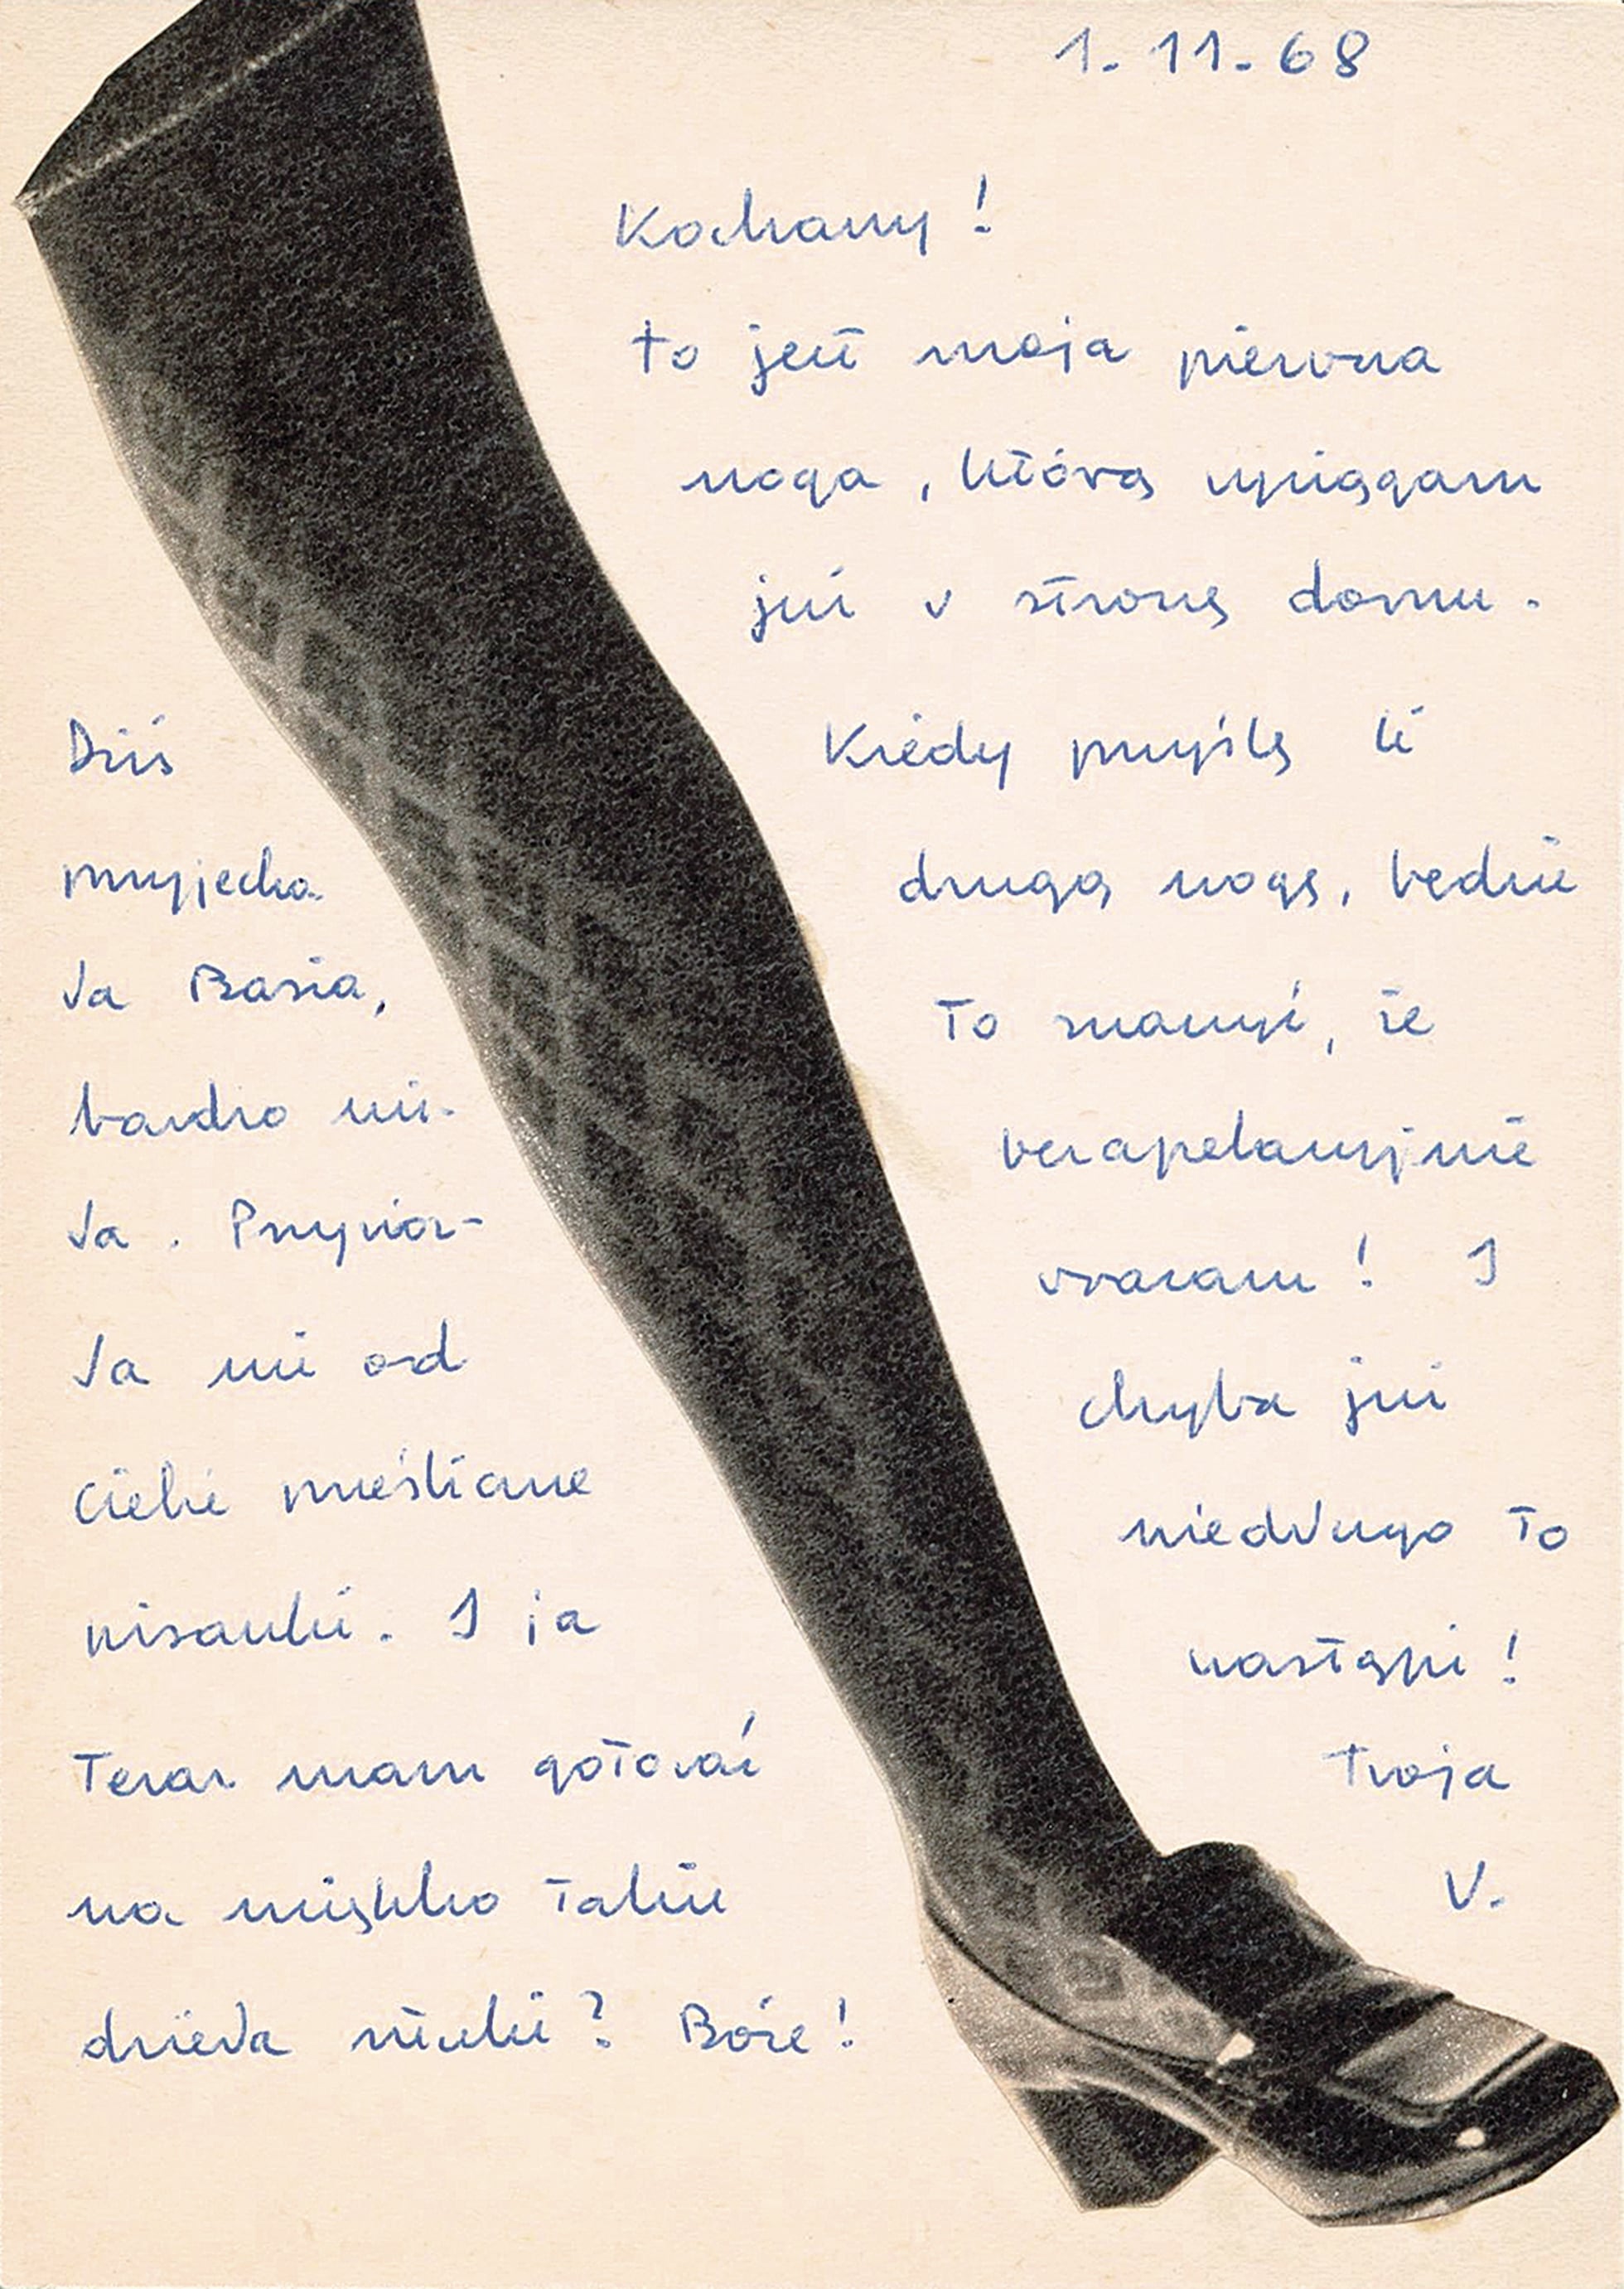 1.11.68
Kochany!
to jest moja pierwsza
noga, którą wyciągam
już w stronę domu.
Kiedy przyślę Ci
drugą nogę, będzie
To znaczyć, że
bezapelacyjnie
wracam! I
chyba już
niedługo to
nastąpi!
Twoja
W.
Dziś
przyjecha
ła Basia,
bardzo mi-
ła. Przywioz-
ła mi od
Ciebie prześliczne
pisanki. I ja
Teraz mam gotować
na miękko takie
dzieła sztuki? Boże!